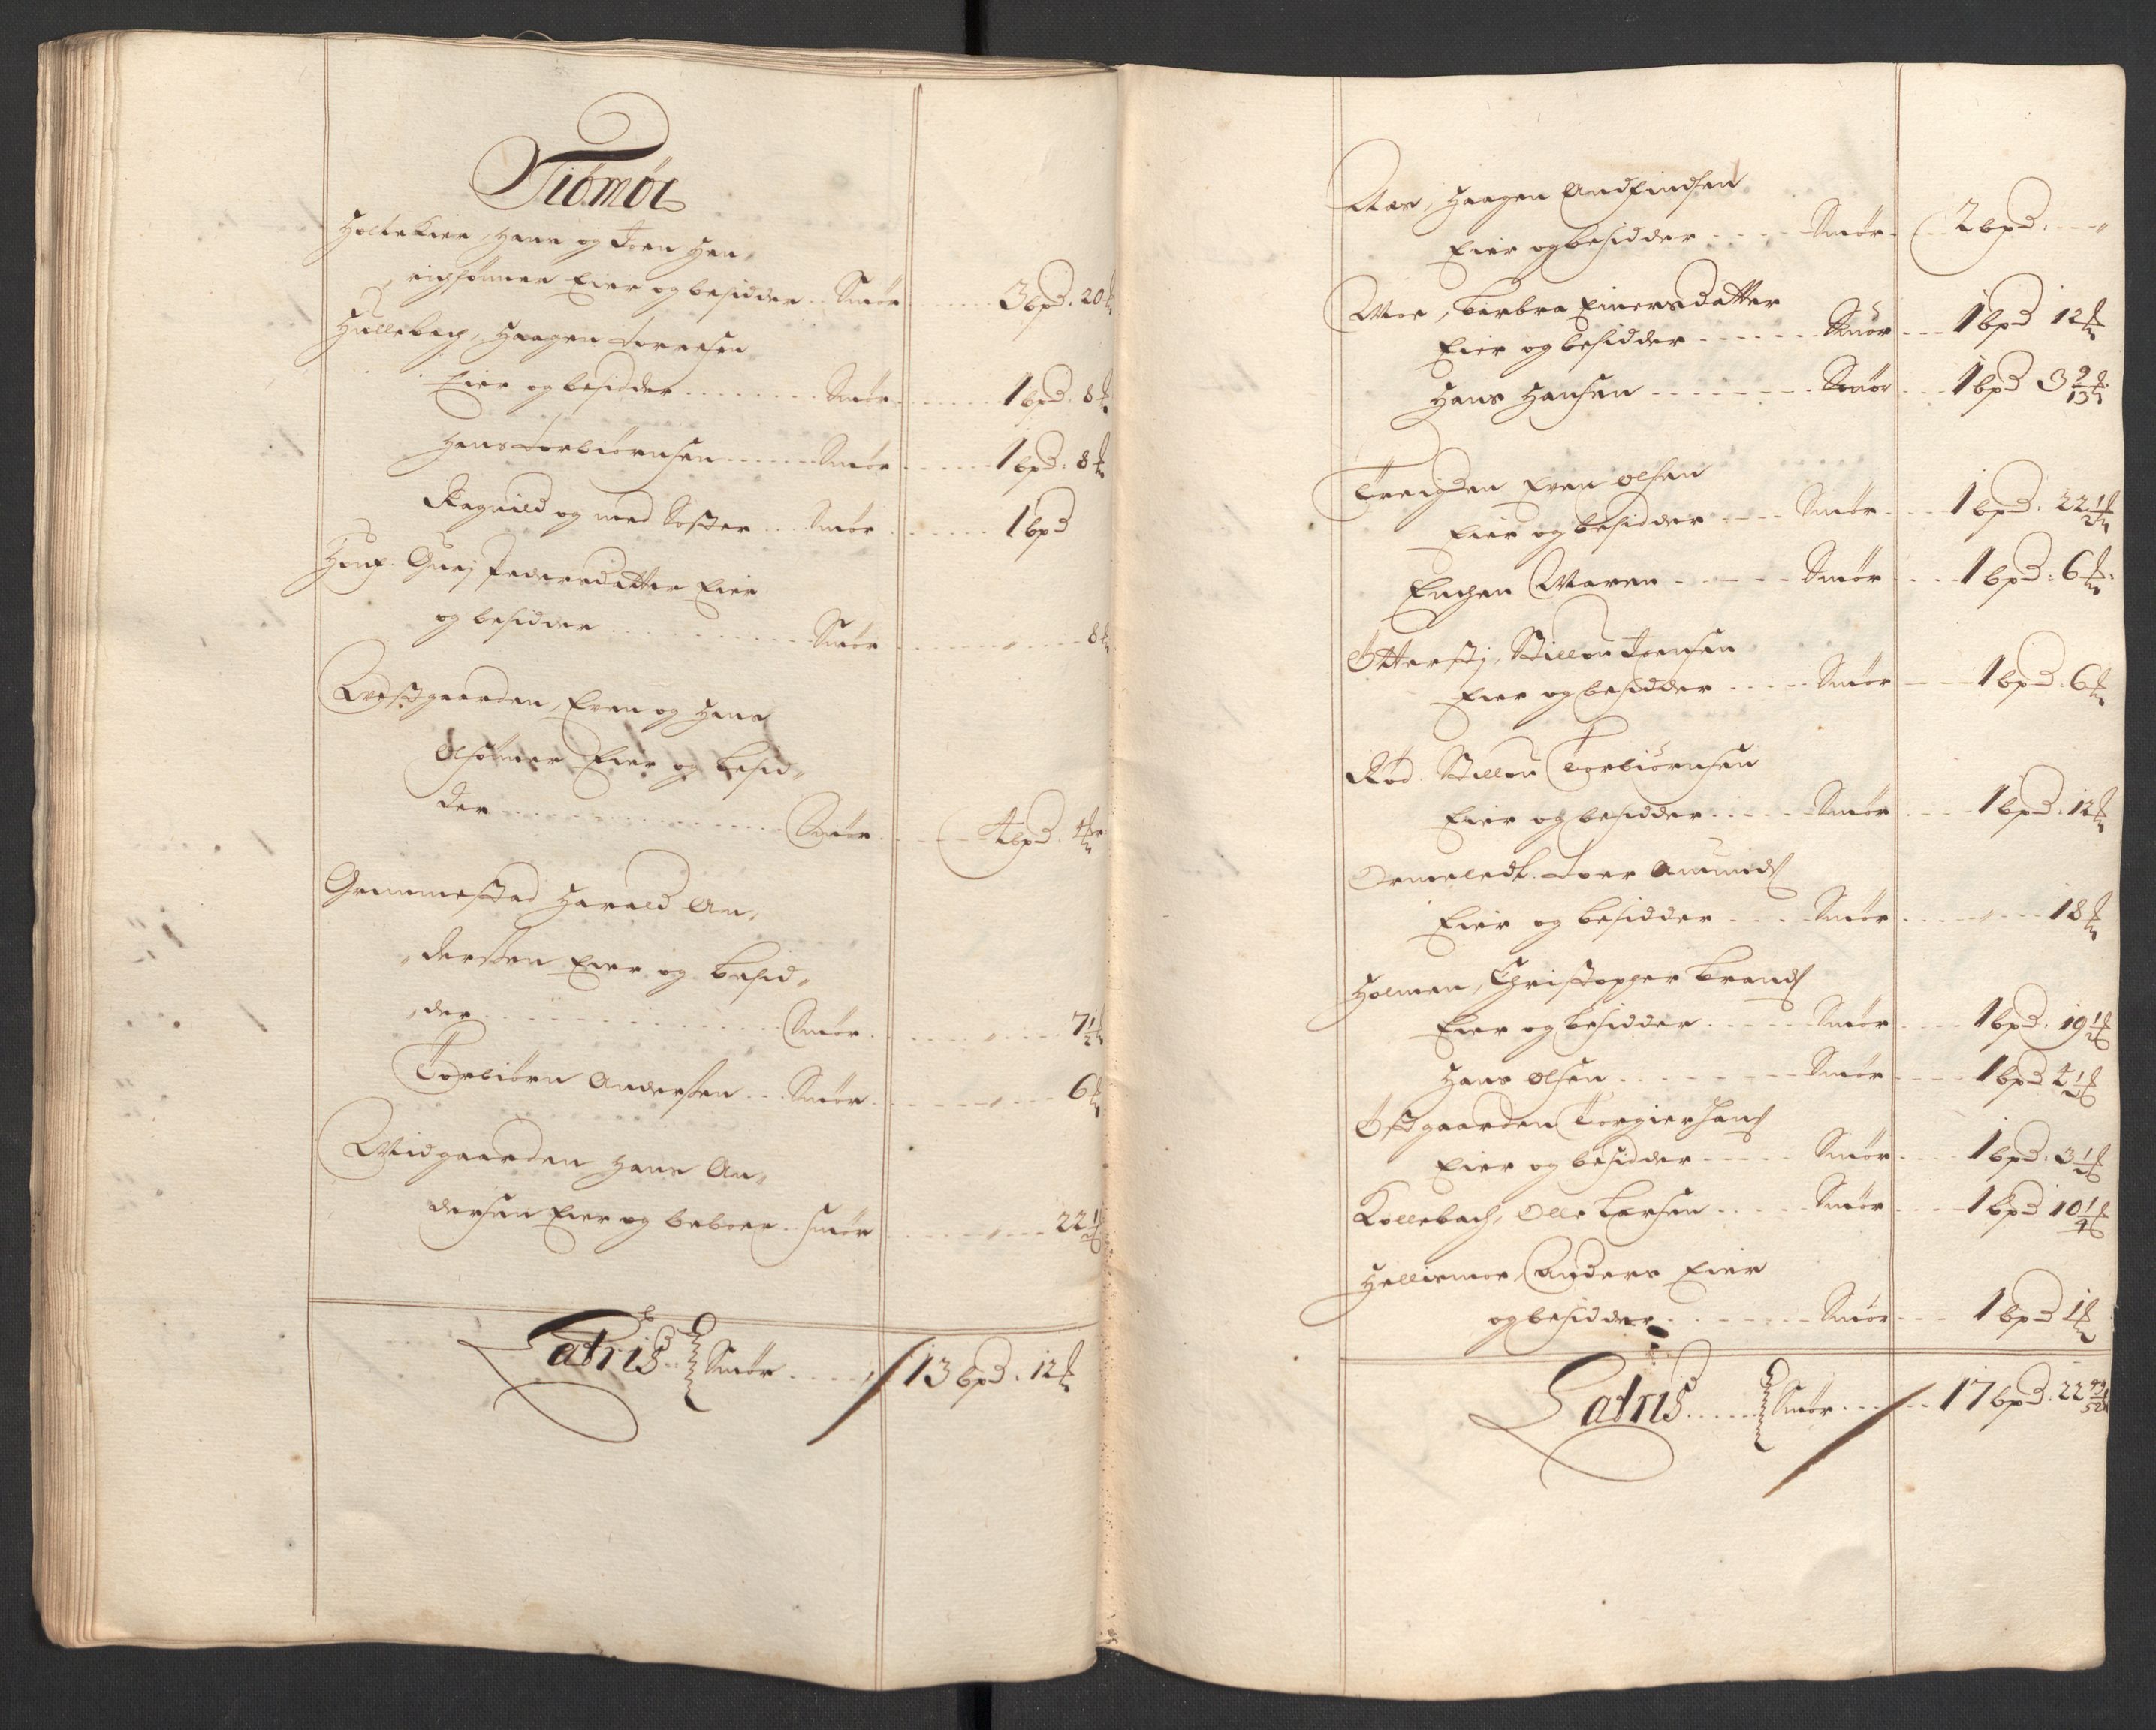 Tiømøe
Holtekier, Hans og Joen Hen,
richsønner Eier og besidder .. Smør ..... 3 bpd. 20 ℔
Hullebach, Haagen Torresen
Eier og besidder ........ Smør ..... 1 bpd. 8 ℔
Hans Torbiørnsen ..... Smør ..... 1 bpd. 8 ℔
Ragnild og med Søster ... Smør ..... 1 bpd
Pedersdatter Eier
og besidder .......... Smør ..... " ..... 8 ℔
Westgaarden, Even og Hans
Olsønner Eier og besid,
der .............. Smør ..... 4 bpd. 4 ℔
Grimmestad Harald An,
dersen Eier og besid,
der .............. Smør ..... " ..... 7 1/2 ℔
Torbiørn Andersen ... Smør ..... " ..... 6 ℔
Midgaarden Hans An,
dersen Eier og beboer .. Smør ..... " ..... 22 1/2 ℔
Latris .. Smør ..... 13 bpd. 12 ℔
Aas, Haagen Andfindsen
Eier og besidder ..... Smør ... 2 bpd. ... "
Moe, Barbra Einersdatter
Eier og besidder ...... Smør ... 1 bpd 12 ℔
Hans Hansen ....... Smør ... 1 bpd 3 9/13 ℔
Even Olsen
Eier og besidder .... Smør ... 1 bpd. 22 1/2 ℔
Enchen Maren ..... Smør ... 1 bpd. 6 ℔
Joensen
Eier og besidder ..... Smør ... 1 bpd. 6 ℔
Rød. Torbiørnsen
Eier og besidder ..... Smør ... 1 bpd. 12 ℔
Ormeledt. Amunds
Eier og besidder .... Smør ... " ... 18 ℔
Holmen, Christopher Brands
Eier og besidder ..... Smør ... 1 bpd. 19 1/2 ℔
Hans Olsen ........ Smør ... 1 bpd 4 1/2 ℔
Østgaarden Torgier Hans
Eier og besidder ..... Smør ... 1 bpd. 3 1/2 ℔
Kollebach, Olle Larsen ..... Smør ... 1 bpd 10 1/4 ℔
Hellismoe, Anders Eier
og besidder ....... Smør ... 1 bpd 1 ℔
Latris ..... Smør ..... 17 bpd. 22 49/52 ℔